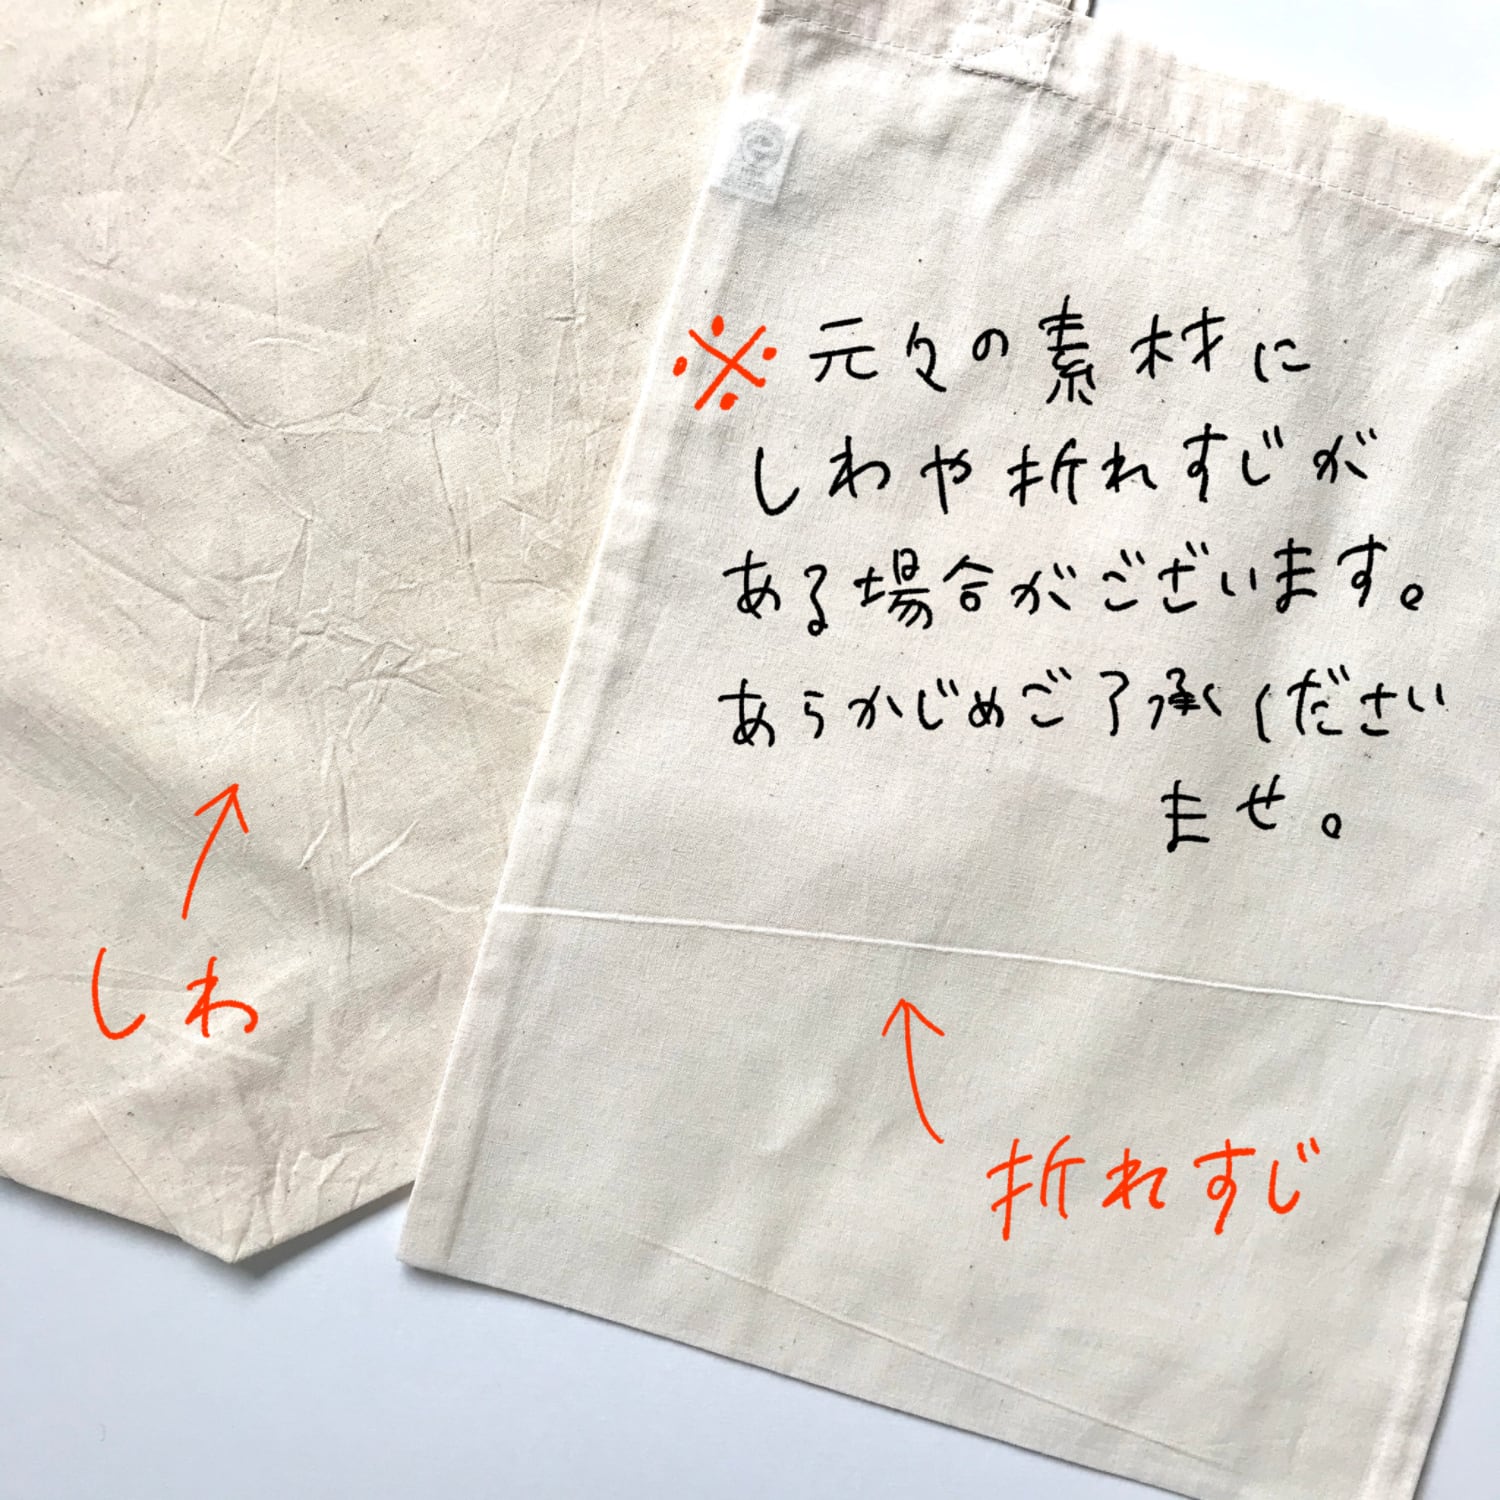 ※元々の素材に
しわや折れすじが
ある場合がございます。
あらかじめご了承ください
ませ。
しわ
折れすじ